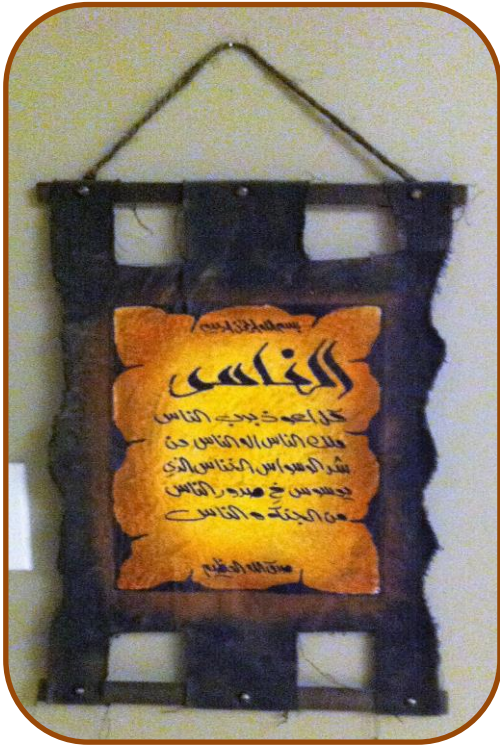 بسم الله الرحمن الرحيم
الناس
قل اعوذ برب الناس
ملك الناس اله الناس من
شر الوسواس الخناس الذي
يوسوس في صدور الناس
من الجنة و الناس
صدق الله العظيم